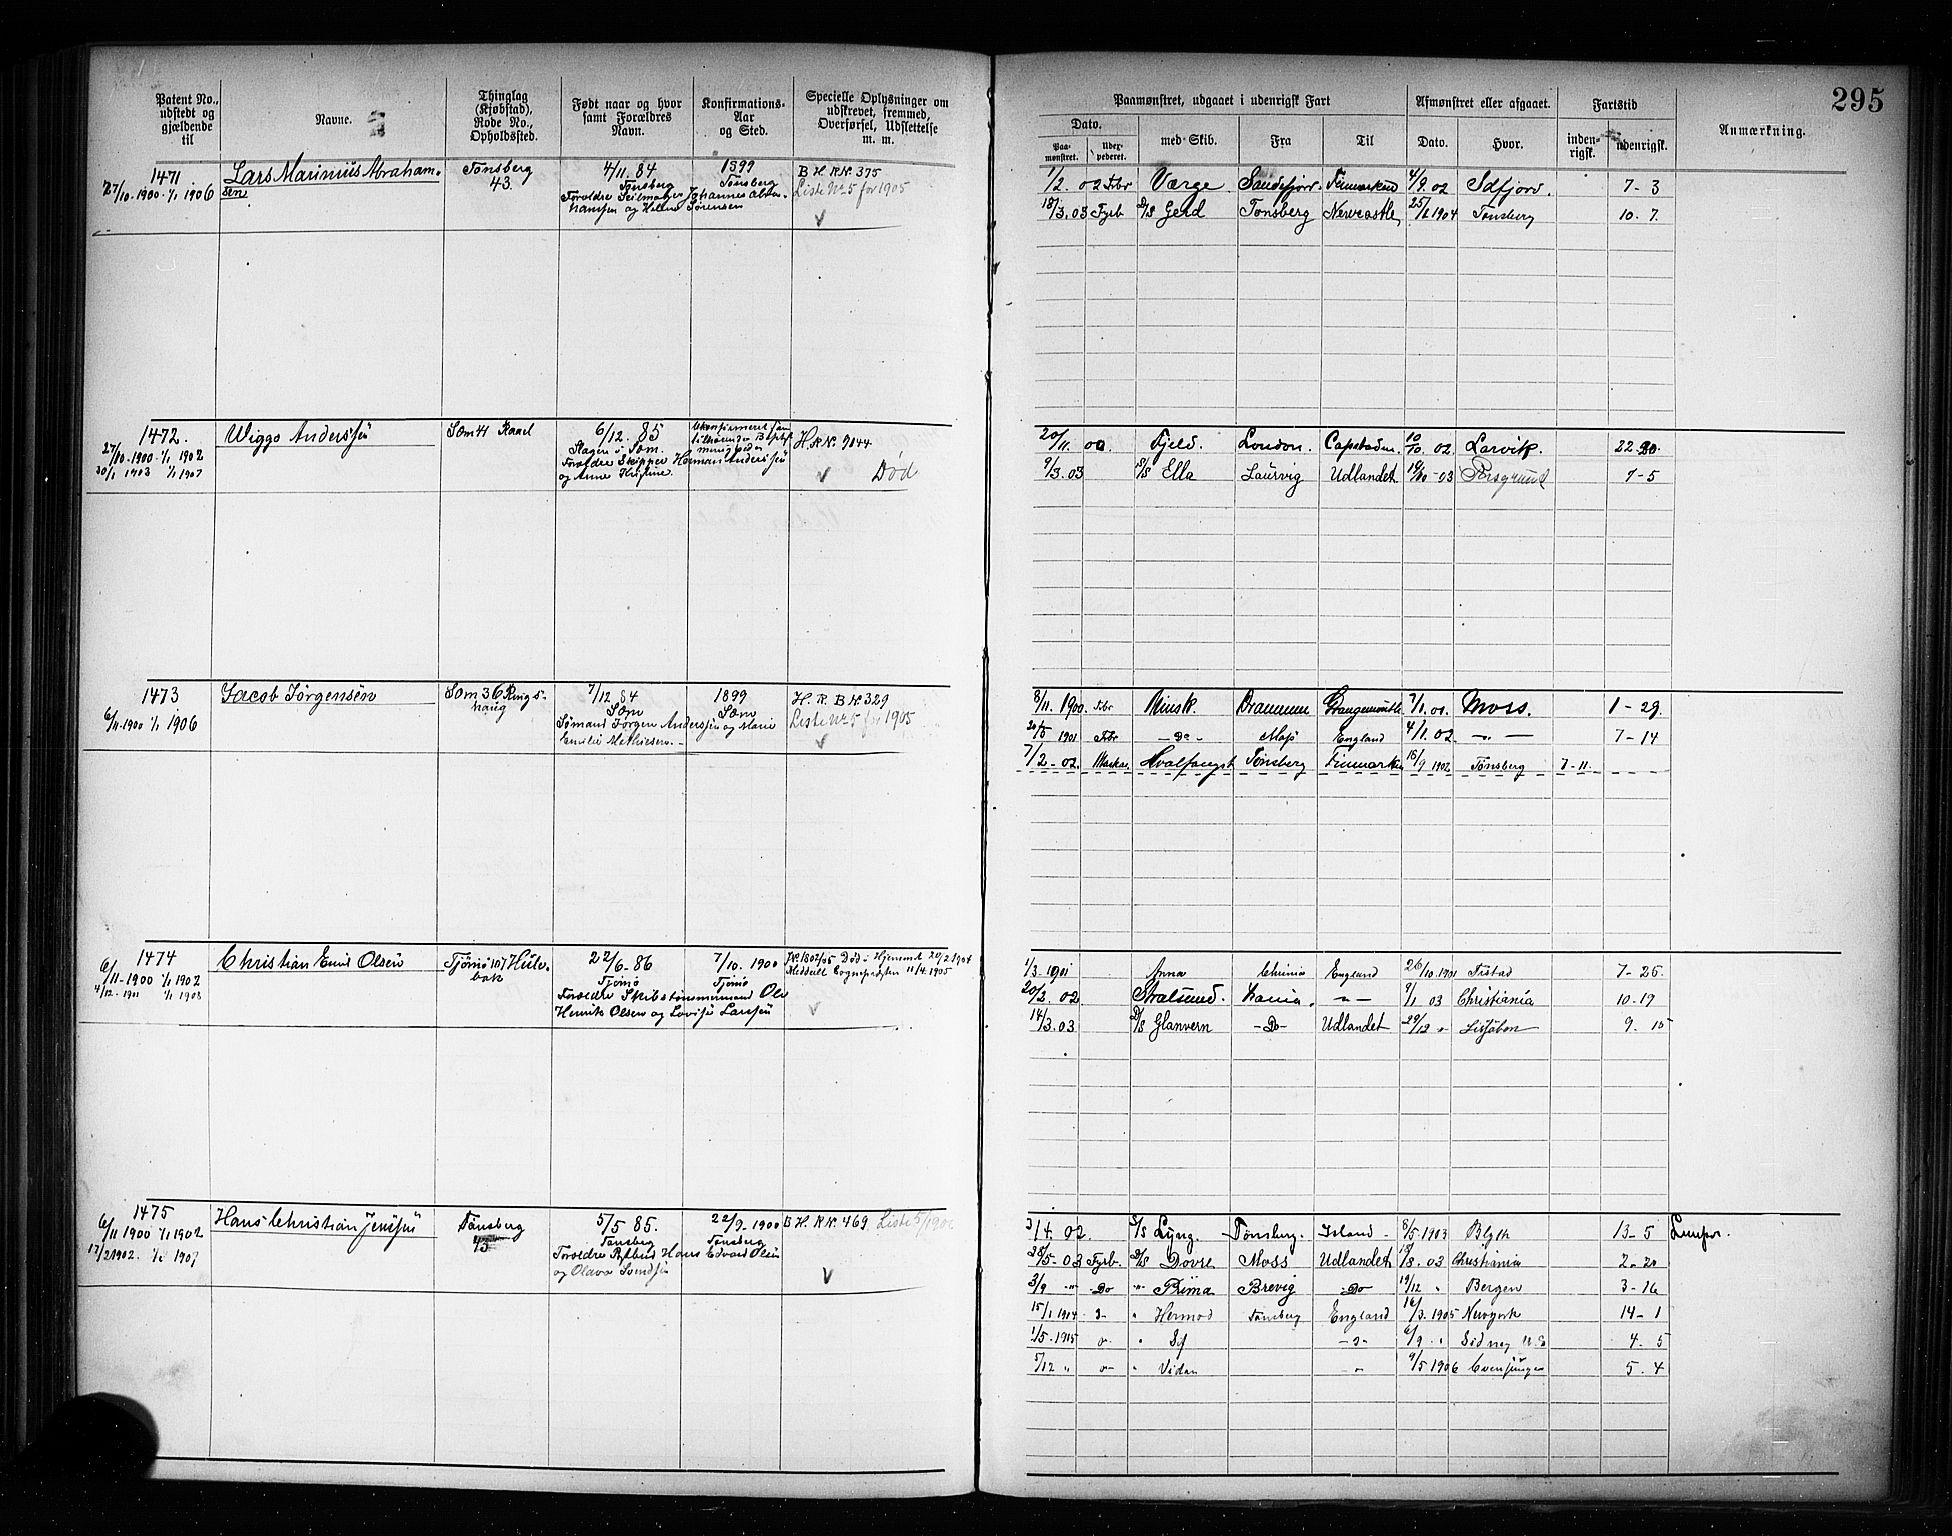 295
Patent No., udstedt og gjældende til
Navne.
Thinglag (Kjøbstad), Rode No., Opholdssted.
Født naar og hvor samt Forældres Navn.
Konfirmations-Aar og Sted.
Specielle Oplysninger om udskrevet, fremmed, Overførsel, Udslettelse m. m.
Paamønstret, udgaaet i udenrigsk Fart
Afmønstret eller afgaaet.
Fartstid
Anmærkning.
Dato.
Paa-mønstret.
med Skib.
Fra
Til
Dato.
Hvor.
inden-rigsk.
udenrigsk.
1471
27/10-1900-1/1 1906
Lars Marinius Abraham-
sen
Tønsberg
43.
4/11. 84
Tønsberg
Forældre Seilmager Johannes
hansen og Helene Sørensen
1899
Tønsberg
B H. R.N. 375
Liste No 5 for 1905
1/2. 02 Fbr Værge Sandefjord Finmarken 4/9. 02 Sdfjord. 7-3
18/3. 03 Fyrb D/S Gerd Tønsberg Newcastle 25/1 1904 Tønsberg 10. 7.
1472.
27/10-1900-1/1 1902
30/1 1903 1/1 1907
Wiggo Anderssen
Sem 41 Raael
6/12. 85
Slagen i Sem.
Forældre Skipper Herman Anderssen
og Anne Kristine.
H. R.N. 9044
Død
20/11. 00 Fjeld. London. Capstaden 10/10. 02 Larvik. 22-20.
9/3. 03 S/S Ella Laurvig Udlandet 19/10-03 Porsgrund 7-5
1473
6/11-1900 1/1 1906
Jacob Jørgensen
Sem 36 Rings-
haug
7/12 84
Sem
Sømand Jørgen Anderssen og Marie
Emilie Mathiesen.
1899
Sem
H. R. B N. 329
Liste No 5 for 1905
8/11. 1900 Fbr Minsk. Drammen Grangemouth 7/1. 01. Moss. 1-29.
20/5 1901 Fbr -Do- Moss England 4/1. 02. 7-14
7/2-02. Hvalfangst Tønsberg Finmarken 18/9 1902 Tønsberg 7-11.
1474
6/11-1900 1/1 1902
4/12-1901 1/1 1908
Christian Emil Olsen
Tjømø 107 Hule-
bak
22/6-86
Tjømø
Forældre Skibstømmermand Ole
Henrik Olsen og Lovise Larssen
7/10. 1900
Tjømø
Død i Hjemmet 20/2 1904
Meddelt Sogneprsten 11/4 1905
1/3. 1901 Anna Chrinia England 26/10. 1901 Fr.stad 7-25.
20/2. 02 Stralsund. 9/1 03 Christiania 10-19
14/3. 03 D/S Glanvern -Do- Udlandet 29/12 Lissabon 9. 15
1475
6/11 1900 1/1 1902
17/2 1902. 1907
Hans Christian Jenssen
Tønsberg
43
5/5 85.
Tønsberg
Forældre Hans Edvard Olsen
og Olava Svendsen
22/9-1900
Tønsberg
B H. R.N. 469 Liste 5/
3/4. 02 S/S Lyng. Tønsberg. Island 8/5 1903 Blyth 13-5 Lemper.
28/5-03 Fyrb. D/S Dovre Moss Udlandet 18/8. 03 Christiania 2-20
3/9 Do Prima Brevig Do 19/12 Bergen 3-16
15/1 1904 Hermod Tønsberg England 16/3. 1905 Newyork 14-1
1/5-1905 6/9 Sidney 4. 5
5/12 Vidar 9/5 1906 5. 4